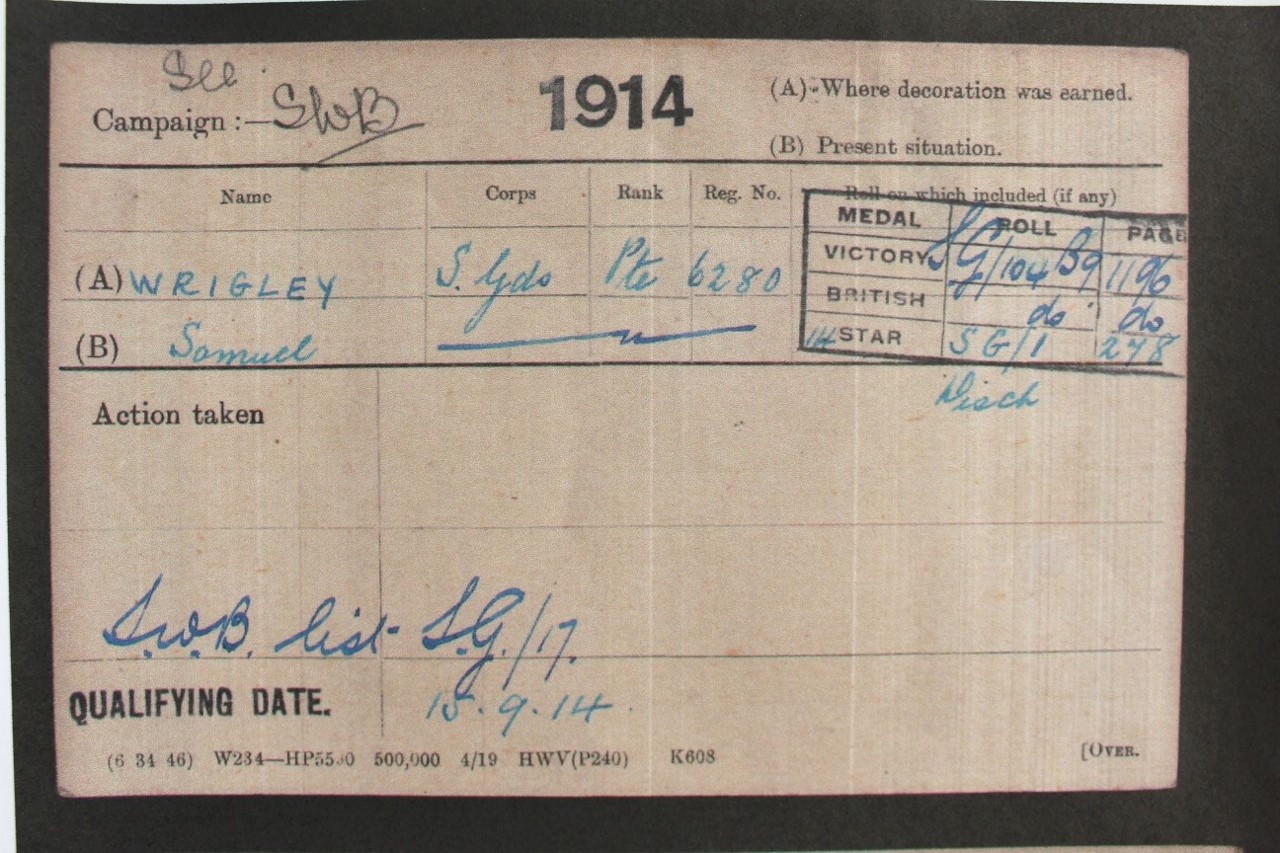 See
Campaign :— SWB 1914 (A) Where decoration was earned.
(B) Present situation.
Name Corps Rank Reg. No. Roll on which included (if any)
MEDAL ROLL PAGE
(A) WRIGLEY S. Gds Pte 6280 VICTORY SG/104 B9 1196
BRITISH do do
(B) Samuel 14 STAR SG/1 278
Disch
Action taken
S.W.B. list S.G./17.
QUALIFYING DATE. 15.9.14.
(6 34 46) W234—HP5590 500,000 4/19 HWV(P240) K608 [OVER.